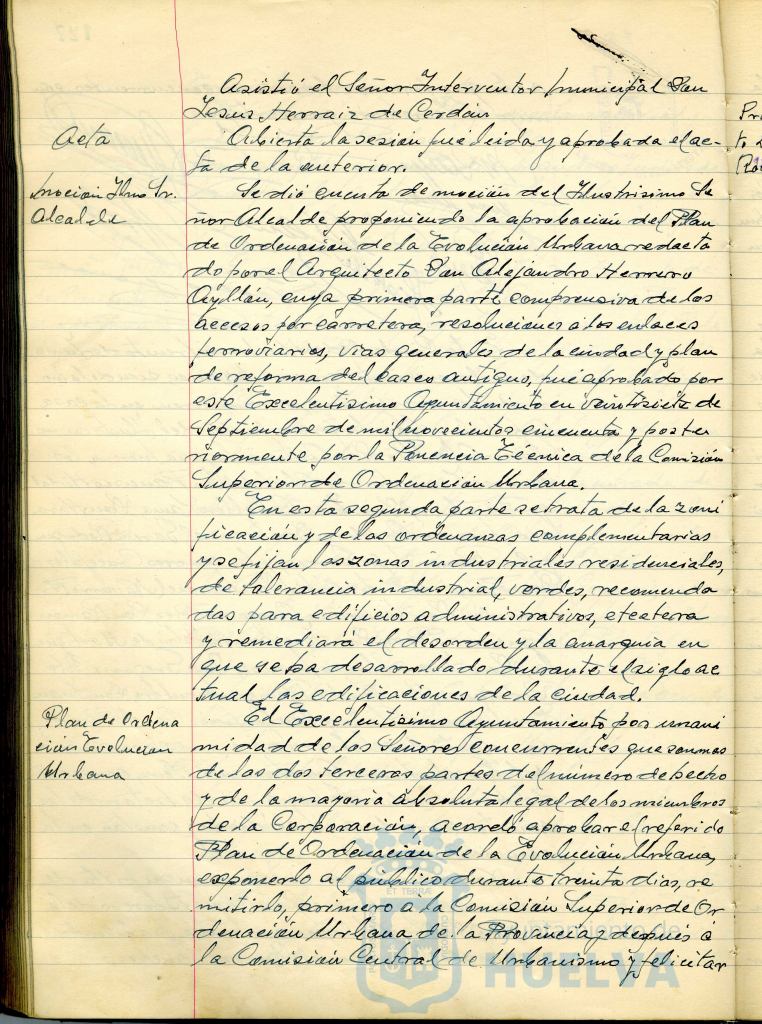 Asistió el Señor Interventor municipal Don
Jesús Herraiz de Cerdán
Acta
Abierta la sesión fué leida y aprobada el ac-
ta de la anterior.
moción Ilmo Sr.
Alcalde
Se dió cuenta de moción del Ilustrisimo Se
ñor Alcalde proponiendo la aprobación del Plan
de Ordenación de la Evolución Urbana redacta
do por el Arquitecto Don Alejandro Herrero
Ayllón, cuya primera parte comprensiva de los
accesos por carretera, resoluciones a los enlaces
ferroviarios, vias generales de la ciudad y plan
de reforma del casco antiguo, fué aprobado por
este Excelentisimo Ayuntamiento en veintisiete de
Septiembre de mil novecientos cincuenta y poste
riormente por la Ponencia Técnica de la Comisión
Superior de Ordenación Urbana.
En esta segunda parte se trata de la zoni
ficación y de las ordenanzas complementarias
y se fijan las zonas industriales residenciales,
de tolerancia industrial, verdes, recomenda
das para edificios administrativos, etcetera
y remediará el desorden y la anarquia en
que se ha desarrollado durante el siglo ac
tual las edificaciones de la ciudad.
Plan de Ordena
ción Evolución
Urbana
El Excelentisimo Ayuntamiento por unani
midad de los Señores concurrentes que son mas
de las dos terceras partes del número de hecho
y de la mayoria absoluta legal de los miembros
de la Corporación, acordó aprobar el referido
Plan de Ordenación de la Evolución Urbana,
exponerlo al público durante treinta dias, re
mitirlo, primero a la Comisión Superior de Or
denación Urbana de la Provincia y después á
la Comisión Central de Urbanismo y felicitar
Ayuntamiento de
HUELVA